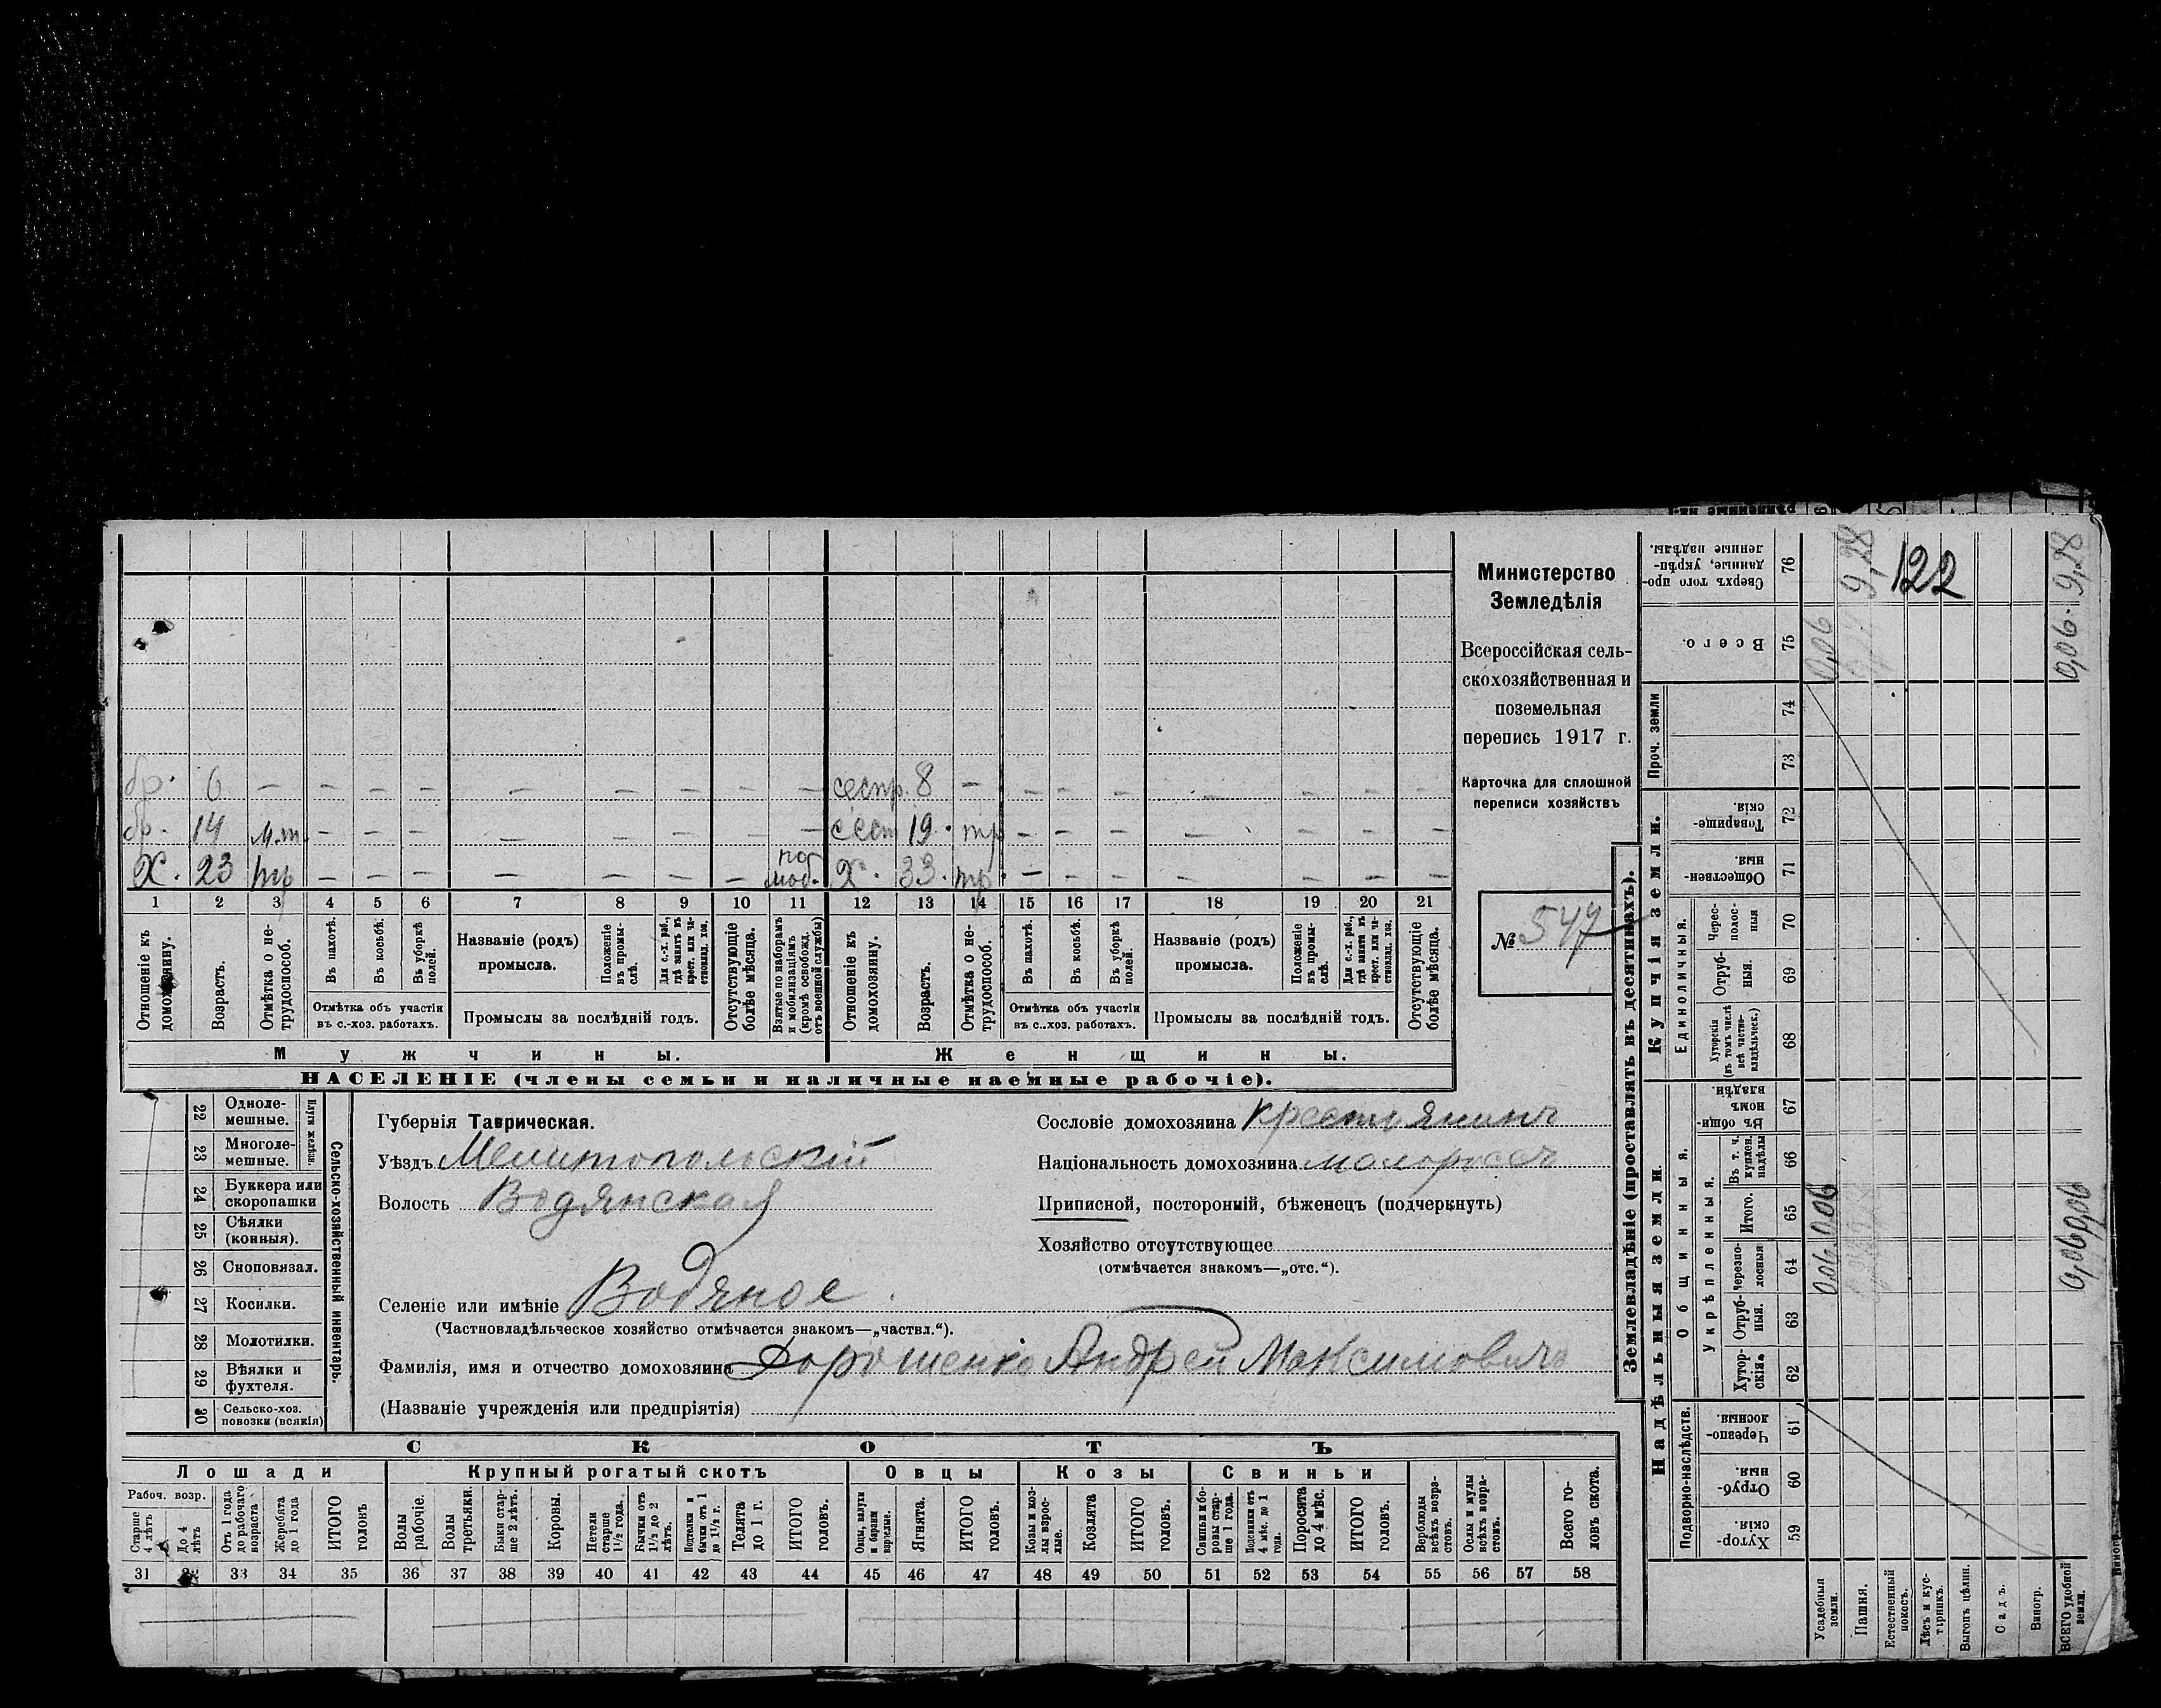 бр. 6 — — — — — — — — — сестр. 8 — — — — — — — —
бр. 14 м.т. — — — — — — — — сест 19. тр — — — — — — —
по
Х. 23 тр — — — — — — — моб. Х. 33. тр. — — — — — — —
1 2 3 4 5 6 7 8 9 10 11 12 13 14 15 16 17 18 19 20 21
Отношеніе къ домохозяину.
Возрастъ.
Отмѣтка о нетрудоспособ.
Въ пахотѣ.
Въ косьбѣ.
Въ уборкѣ полей.
Отмѣтка объ участіи
въ с.-хоз. работахъ.
Названіе (родъ)
промысла.
Положеніе въ промыслѣ.
Для с.-х. раб., гдѣ занятъ въ крест. или частновлад. хоз.
Промыслы за послѣдній годъ.
Отсутствующіе болѣе мѣсяца.
Взятые по наборамъ и мобилизаціямъ (кромѣ освобожд. отъ военной службы)
Отношеніе къ домохозяину.
Возрастъ.
Отмѣтка о нетрудоспособ.
Въ пахотѣ.
Въ косьбѣ.
Въ уборкѣ полей.
Отмѣтка объ участіи
въ с.-хоз. работахъ.
Названіе (родъ)
промысла.
Положеніе въ промыслѣ.
Для с.-х. раб., гдѣ занята въ крест. или частновлад. хоз.
Промыслы за послѣдній годъ.
Отсутствующіе болѣе мѣсяца.
Мужчины.
Женщины.
НАСЕЛЕНІЕ (члены семьи и наличные наемные рабочіе).
Министерство
Земледѣлія
Всероссійская сель-
скохозяйственная и
поземельная
перепись 1917 г.
Карточка для сплошной
переписи хозяйствъ
№ 547
22 Одноле-
мешные.
23 Многоле-
мешные.
Плуги желѣз.
24 Буккера или
скоропашки
25 Сѣялки
(конныя).
26 Сноповязал.
27 Косилки.
28 Молотилки.
29 Вѣялки и
фухтеля.
30 Сельско-хоз.
повозки (всякія)
Сельско-хозяйственный инвентарь.
Губернія Таврическая.
Уѣздъ Мелитопольскій
Волость Водянская
Селеніе или имѣніе Водяное
(Частновладѣльческое хозяйство отмѣчается знакомъ—„частвл.“).
Фамилія, имя и отчество домохозяина Дорошенко Андрей Максимовичъ
(Названіе учрежденія или предпріятія)
Сословіе домохозяина крестьянинъ
Національность домохозяина малороссъ
Приписной, посторонній, бѣженецъ (подчеркнуть)
Хозяйство отсутствующее
(отмѣчается знакомъ—„отс.“).
СКОТЪ
Лошади
Крупный рогатый скотъ
Овцы
Козы
Свиньи
Рабоч. возр.
Старше 4 лѣтъ
До 4 лѣтъ
Отъ 1 года до рабочаго возраста
Жеребята до 1 года
ИТОГО головъ
Волы рабочіе.
Волы третьяки.
Быки старше 2 лѣтъ.
Коровы.
Нетели старше 1½ года.
Бычки отъ 1½ до 2 лѣтъ.
Подтелки и бычки отъ 1 до 1½ г.
Телята до 1 г.
ИТОГО головъ.
Овцы, валухи и бараны взрослые.
Ягнята.
ИТОГО головъ.
Козы и козлы взрослые.
Козлята
ИТОГО головъ.
Свиньи и боровы старше 1 года.
Подсвинки отъ 4 мѣс. до 1 года.
Поросята до 4 мѣс.
ИТОГО головъ.
Верблюды всѣхъ возрастовъ.
Ослы и мулы всѣхъ возрастовъ.
Всего головъ скота.
31 33 34 35 36 37 38 39 40 41 42 43 44 45 46 47 48 49 50 51 52 53 54 55 56 57 58
Землевладѣніе (проставлять въ десятинахъ).
Надѣльныя земли.
Купчія земли.
Проч. земли
Подворно-наслѣдств.
Общинныя.
Укрѣпленныя.
Единоличныя.
Хуторскія 59
Отрубныя. 60
Черезполосныя 61
Хуторскія 62
Отрубныя. 63
Черезполосныя 64
Итого. 65
Въ т. ч. куплен. надѣлы 66
Въ общиномъ владѣн. 67
Хуторскія (въ томъ числѣ всѣ частновладѣльческ.) 68
Отрубныя. 69
Черезполосныя 70
Общественныя 71
Товарищескія. 72
73
74
Всего. 75
Сверхъ того проданные, укрѣпленные надѣлы. 76
Усадебныя земли. 0,06 0,06 0,06
Пашня. 9,28
Естественный покосъ.
Лѣсъ и кустарникъ.
Выгонъ цѣлин.
Садъ.
Виногр.
ВСЕГО удобной земли. 0,06 0,06 0,06. 9,28
122